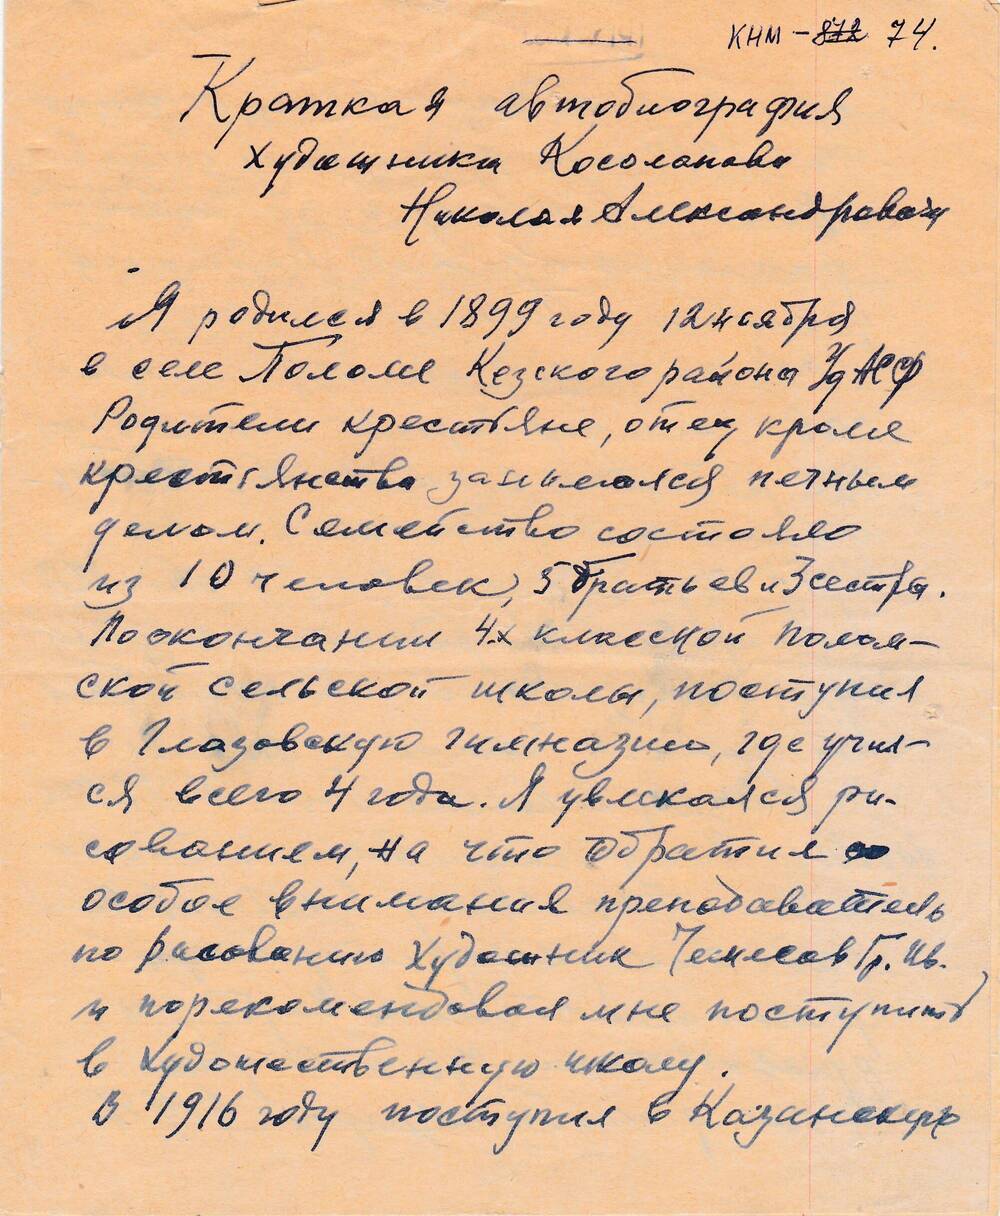 КНМ – 872 74.
Краткая автобиография
художника Косолапова
Николая Александровича
Я родился в 1899 году 12 ноября
в селе Поломе Кезского района УдАССР
Родители крестьяне, отец кроме
крестьянства занимался печным
делом. Семейство состояло
из 10 человек, 5 братьев и 3 сестры.
По окончании 4х классной Полом-
ской сельской школы, поступил
в Глазовскую гимназию, где учил-
ся всего 4 года. Я увлекался ри-
сованием, на что обратил
особое внимания преподаватель
по рисованию художник Гр. Ив.
и порекомендовал мне поступить
в художественную школу.
В 1916 году поступил в Казанскую